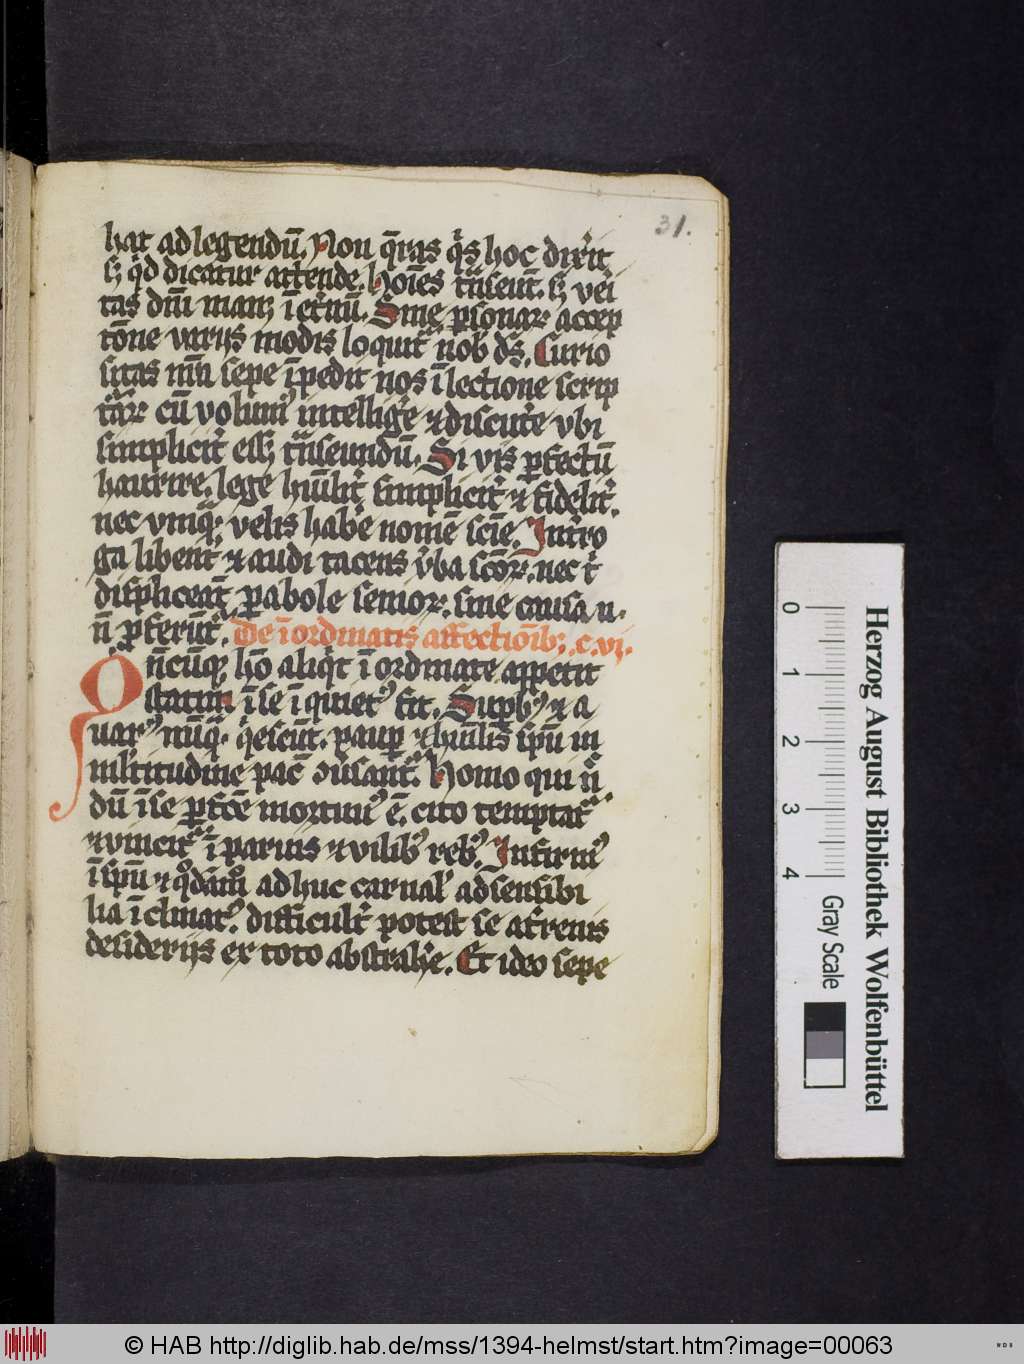 31.
hat ad legendū. Non q̄ras qͥs hoc dixit
sꝫ qͥd dicatur attende. Hoīes trͣseūt. sꝫ veͥ
tas dm̄ manꝫ ī etͥnū. Sine ꝑsonaꝝ accep
tōne varijs modis loquitͬ nob̄ ds̄. Curio
sitas nr̄a sepe īpedit nos ī lectione scrip
tͣrꝝ cū volumꝰ intelligͤe ⁊ discutͤe vbi
simplicitͥ essꝫ trͣseundū. Si vis ꝓfectū
haurire. lege hūilitͥ simplicitͥ ⁊ fidelitͥ.
nec vnqͣꝫ velis habͤe nomē scīe. Intͥro
ga libentͥ ⁊ audi tacens v̓ba sc̄oꝝ. nec tͥ
displiceāt ꝑabole senioꝝ. sine causa n.
n̄ ꝓferūtͬ. De īordinatis affectioīb; .c. vi.
Qn̄cūqꝫ hō aliqͥt īordinate appetit
statim ī se īquietꝰ fit. Supbꝰ ⁊ a
uarꝰ nūqͣꝫ qͥescūt. paup ⁊ hūilis spū in
mltitudine pac̄ ↄv̓santͬ. Homo qui nͦ
dū ī se ꝑfcē mortuꝰ ē. cito temptatͬ
⁊ vincitͬ ī paruis ⁊ vilibꝰ rebꝰ. Infirmꝰ
ī spū ⁊ qͦdāmͦ adhuc carnal̓ ad sensibi
lia īclinatꝰ. difficultͥ potest se a tͥrenis
desiderijs ex toto abstrahͤe. Et ideo sepe
Herzog August Bibliothek Wolfenbüttel
0 1 2 3 4
Gray Scale
© HAB http://diglib.hab.de/mss/1394-helmst/start.htm?image=00063